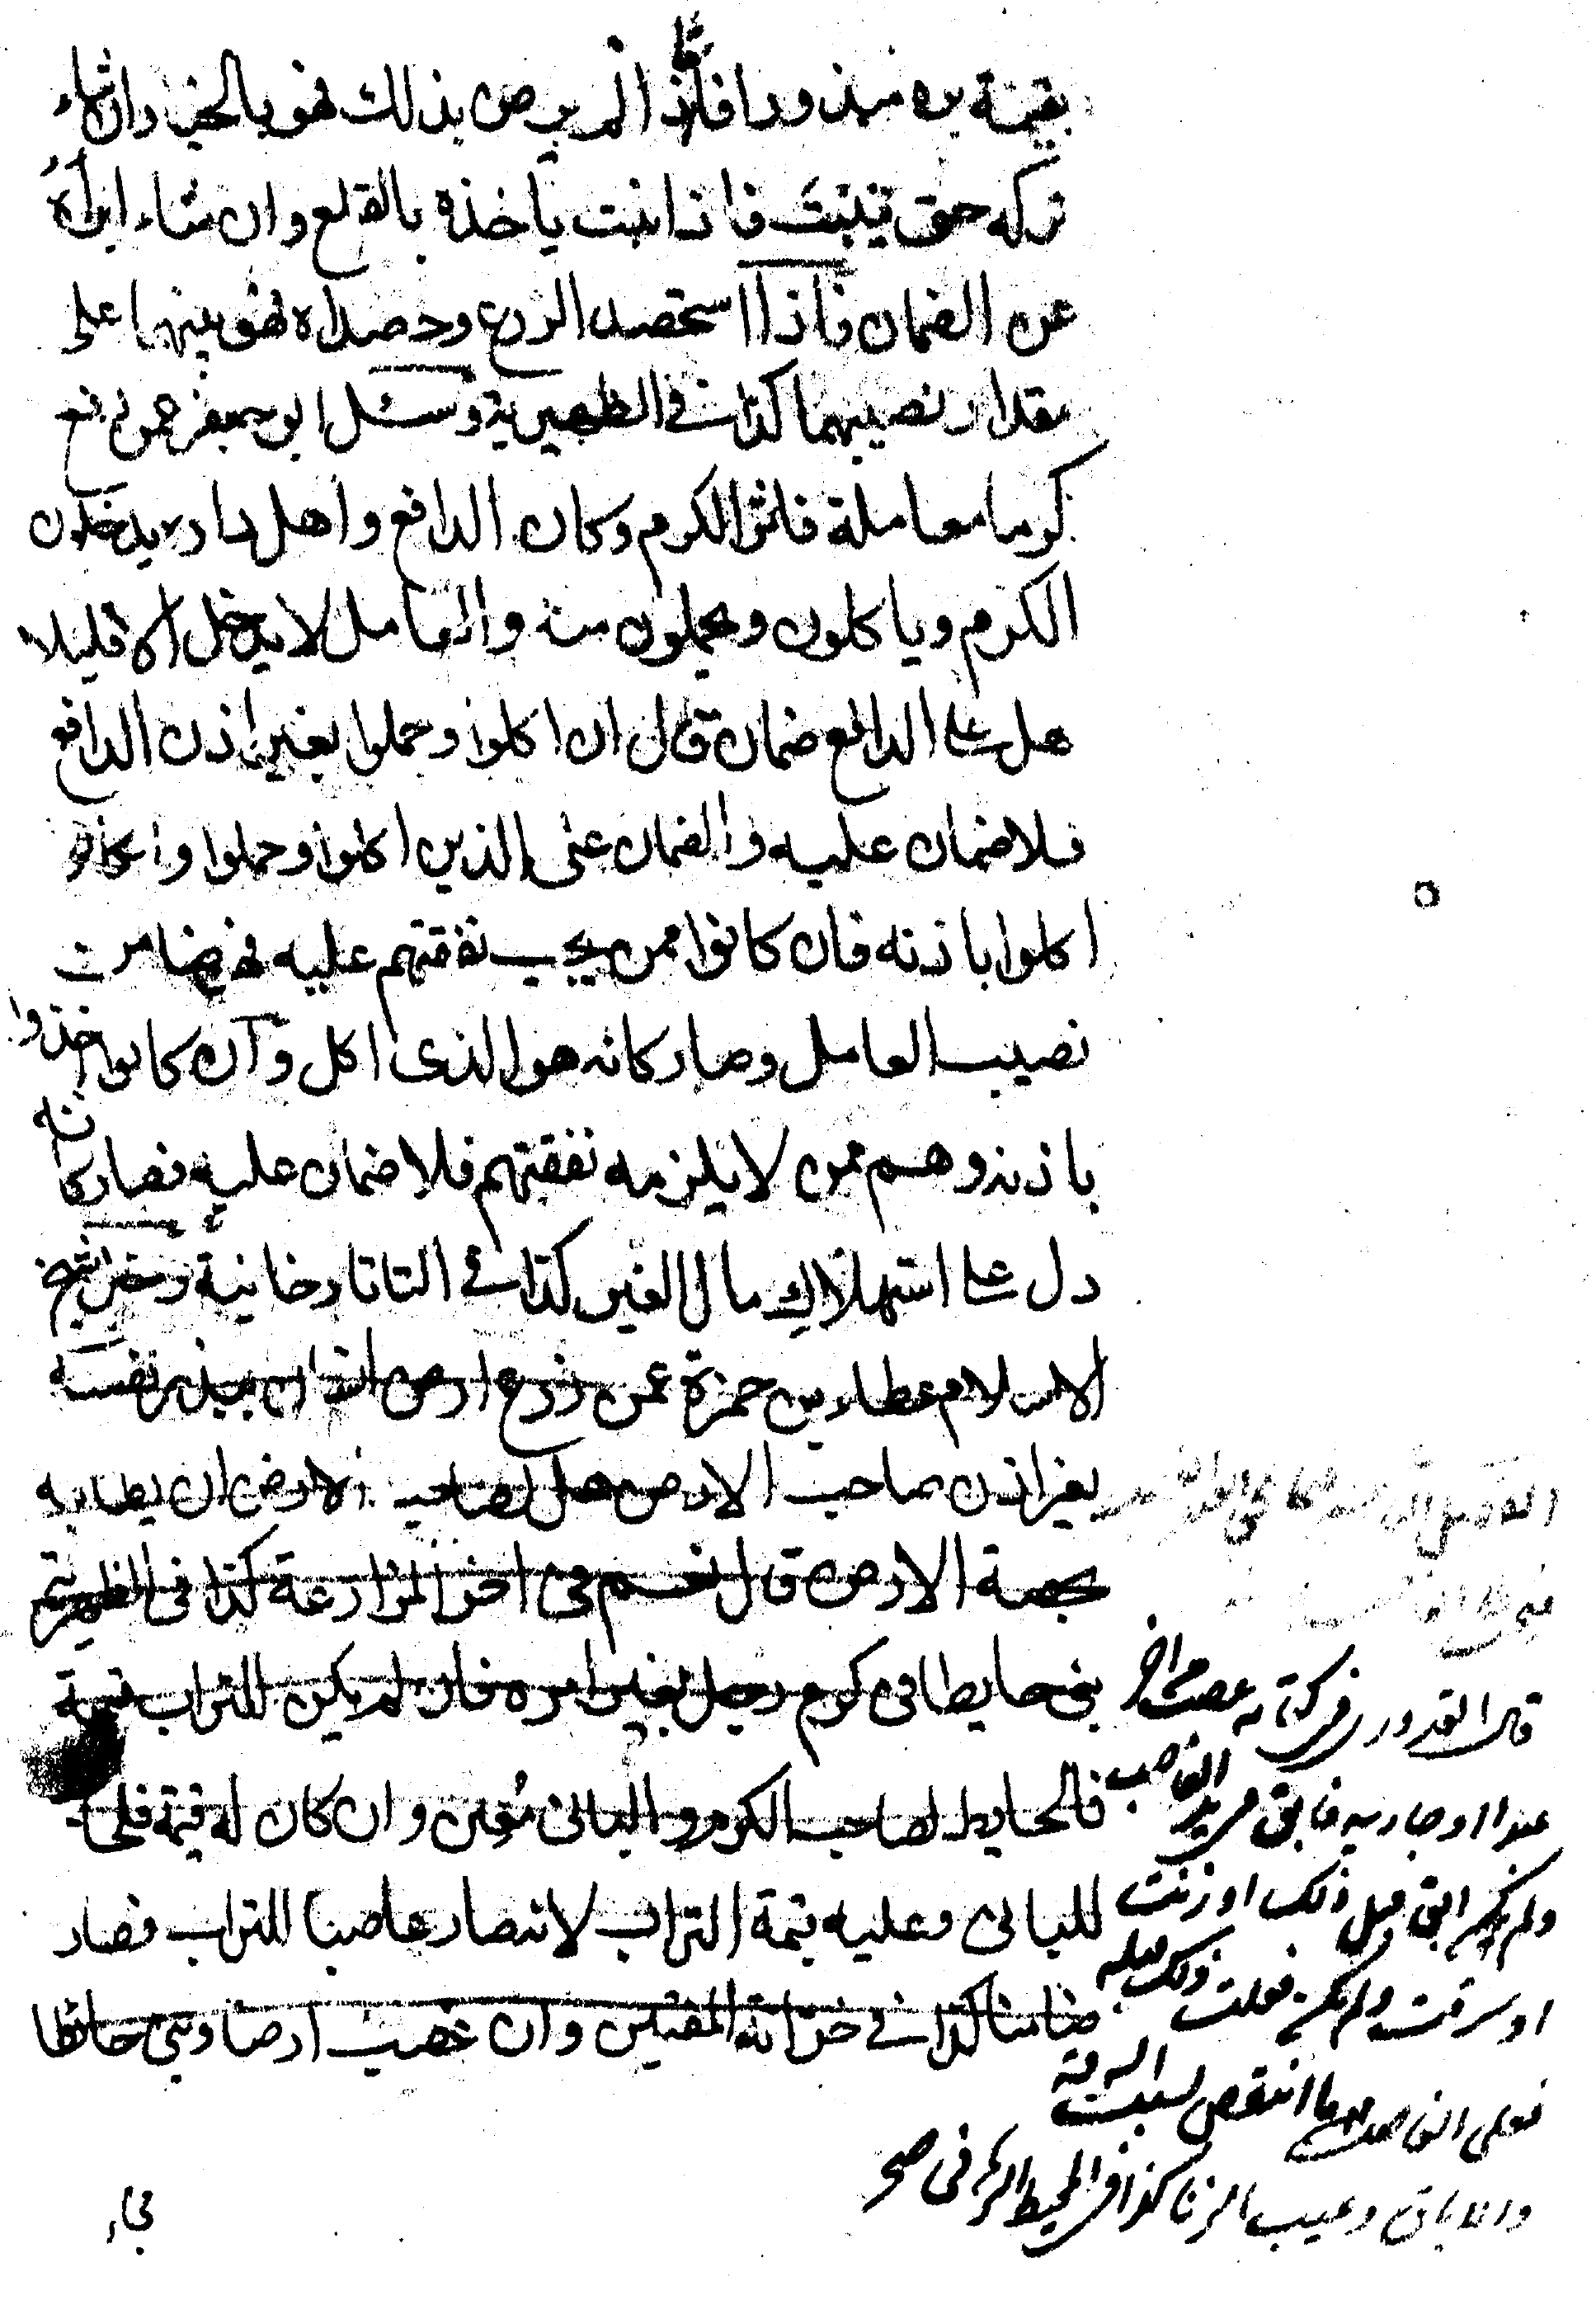 بقيمة بره مبذورا فان لم يرض بذلك فهو بالخيار ان شاء
تركه حتى ينبت فاذا نبت ياخذه بالقلع وان شاء ابراه
عن الضمان فاذا استحصد الزرع وحصداه فهو بينهما على
مقدار نصيبهما كذا في الظهيرية وسئل ابو جعفر عمن دفع
كرما معاملة فاثمر الكرم وكان الدافع واهل داره يدخلون
الكرم وياكلون ويحملون منه والعامل لا يدخل الا قليلا
هل على الدافع ضمان قال ان اكلوا وحملوا بغير اذن الدافع
فلا ضمان عليه والضمان على الذين اكلوا وحملوا وان كانوا
اكلوا باذنه فان كانوا ممن يجب نفقتهم عليه فهو ضامن
نصيب العامل وصار كانه هو الذي اكل وان كانوا اخذوا
باذنه وهم ممن لا يلزمه نفقتهم فلا ضمان عليه فصار كانه
دل على استهلاك مال الغير كذا في التاتارخانية وسئل شيخ
الاسلام عطاء بن حمزة عمن زرع ارض انسان ببذر نفسه
بغير اذن صاحب الارض هل لصاحب الارض ان يطالبه
بحصة الارض قال نعم كذا في الظهيرية
بنى حايطا في كرم رجل بغير امره فان لم يكن للتراب قيمة
فالحايط لصاحب الكرم والباني معين وان كان له قيمة فالحايط
للباني وعليه قيمة التراب لانه صار غاصبا للتراب فصار
ضامنا كذا في خزانة المفتين وان غصب ارضا وبنى حائطا
قال القدوري في كتابه غصب من اخر
عبدا او جارية فابق في يد الغاصب
ولم يكن ابق قبل ذلك او زنت
او سرقت ولم يكن فعلت ذلك قبله
فعلى الغاصب ما انتقص بسبب السرقة
والاباق وعيب الزنا كذا في المحيط
فجاء